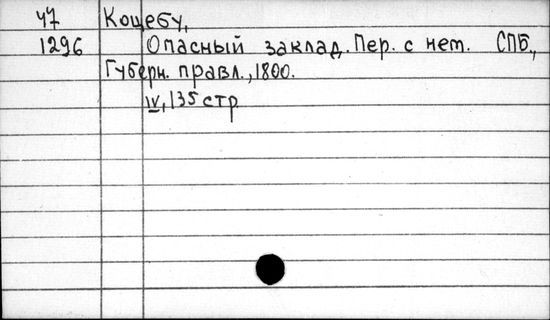 47 Коцебу,
1296 Опасный заклад. Пер. с нем. СПБ.,
Губерн. правл., 1800.
IV, 135 стр